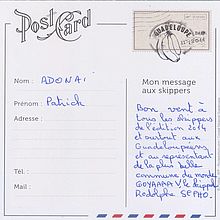 Post Card
GUADELOUPE
Nom : ADONAI
Prénom : Patrick
Adresse :
Tél. :
Mail :
Mon message
aux skippers
Bon vent à
tous les skippers
de l'édition 2014
et surtout aux
Guadeloupéens
et au représentant
de la plus belle
commune du monde
GOYAVE le skipper
Rodolphe SEPHO.